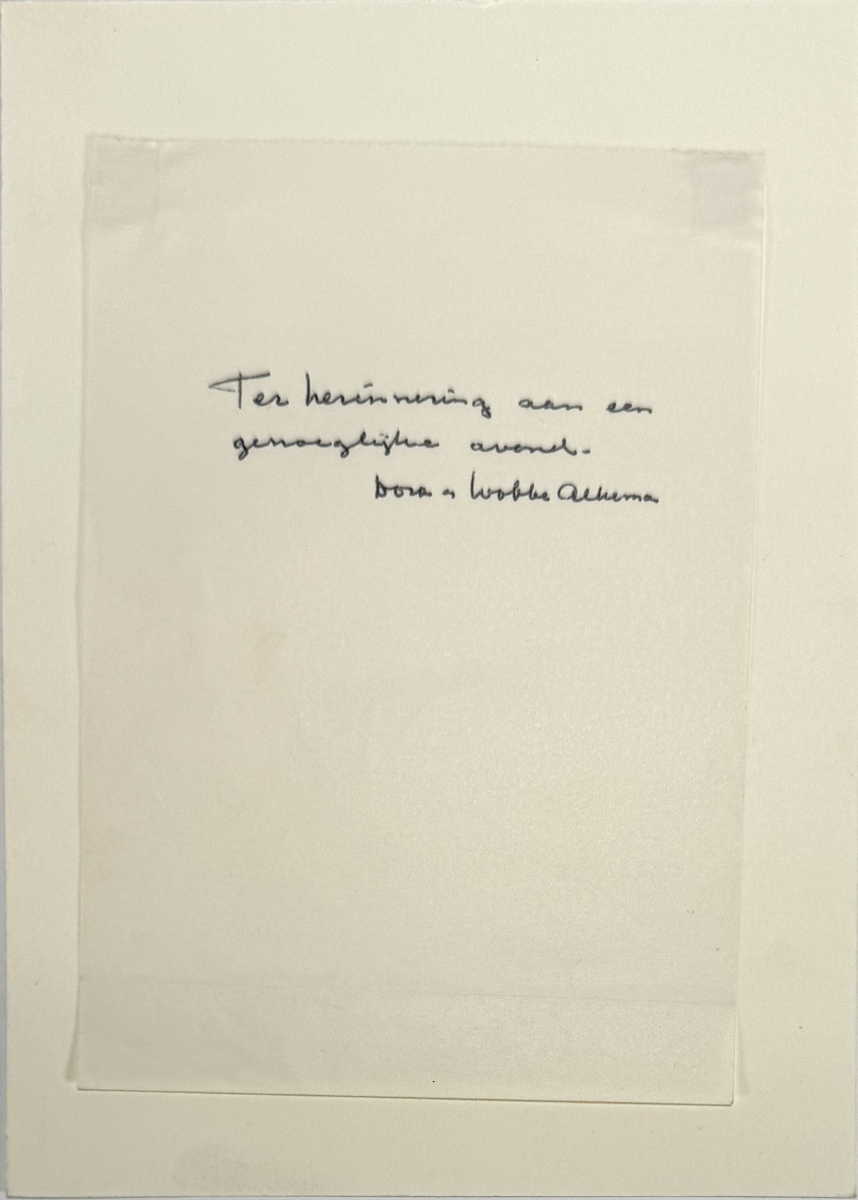 Ter herinnering aan een
genoeglijke avond.
Dora en Wobbe Alkema